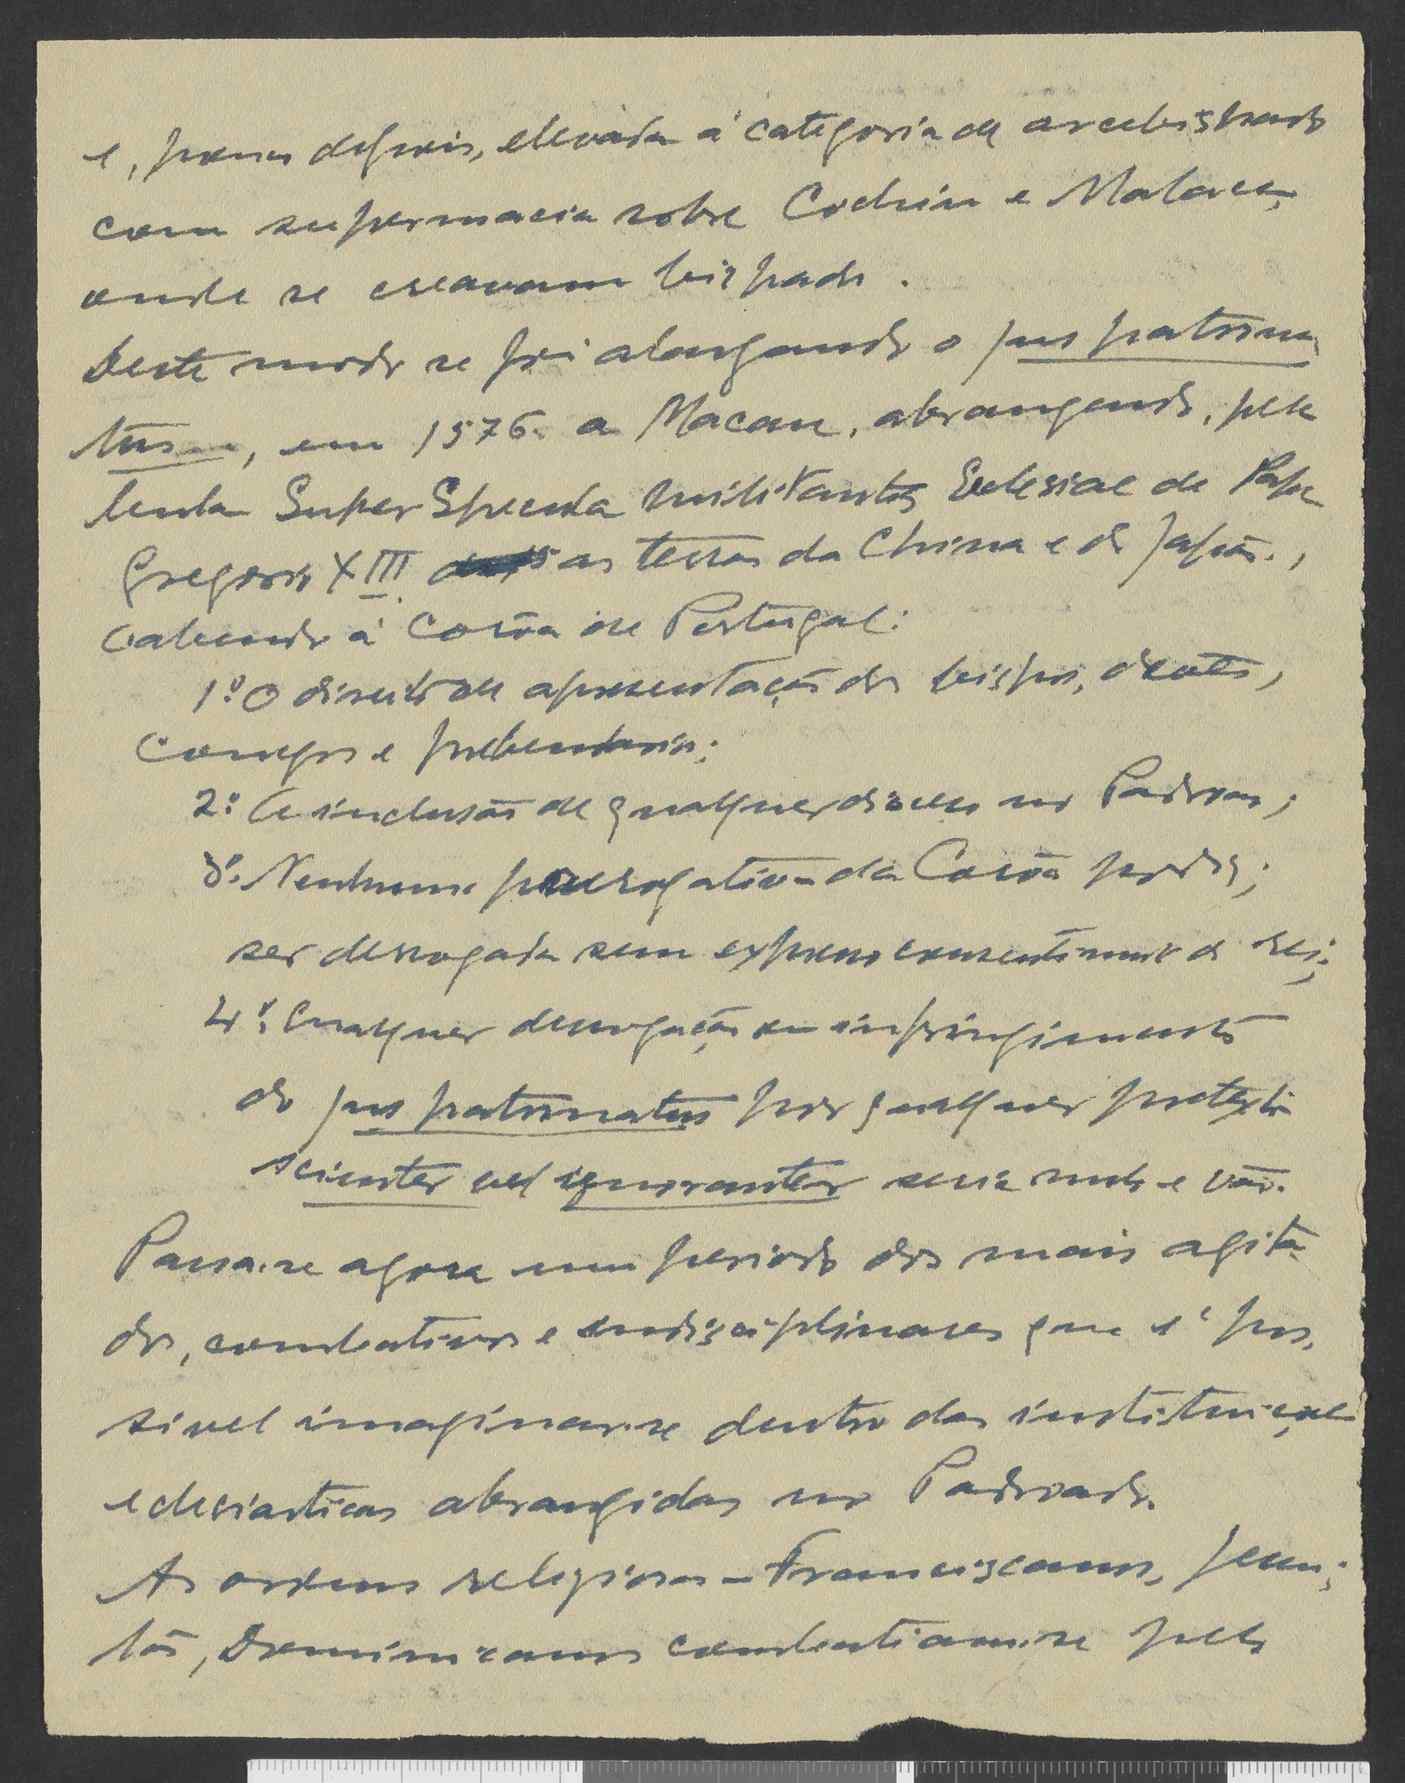 e, pouco depois, elevada á categoria de arcebispado
com supermacia sobre Cochim e Malaca,
onde se creavam bispados.
Deste modo se foi alongando o jus patrona
tus, em 1576 a Macau, abrangendo, pela
bula Super Specula Militantes Eclesiae do Papa
Gregorio XIII as terras da China e do Japão,
cabendo á Corôa de Portugal:
1.º O direito de apresentação dos bispos,
conegos e prebendarios;
2.º A inclusão de qualquer diocese no Padroado;
3.º Nenhuma prerrogativa da Corôa poderá;
ser derrogada sem expresso consentimento do rei;
4.º Qualquer derrogação ou infringimento
do jus patronatus por qualquer pretexto
scienter vel ignoranter seria nulo e vão.
Passa-se agora um periodo dos mais agita-
dos, combativos e indisciplinares que é pos-
sivel imaginar-se dentro das instituições
eclesiasticas abrangidas no Padroado.
As ordens religiosas - Franciscanos, Jesui-
tas, Dominicanos combatiam-se pelo